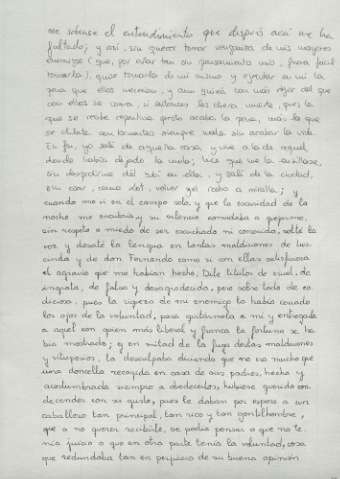 me sobrase el entendimiento que después acá me ha
faltado; y así, sin querer tomar venganza de mis mayores
enemigos (que, por estar tan sin pensamiento mío, fuera fácil
tomarla), quise tomarla de mi mismo y ejecutar en mí la
pena que ellos merecían, y aun quizá con más rigor del que
con ellos se usara, si entonces les diera muerte, pues la
que se recibe repentina presto acaba la pena, mas la que
se dilata con tormentos siempre mata sin acabar la vida.
En fin, yo salí de aquella casa, y vine a la de aquel
donde había dejado la mula; hice que me la ensillase,
sin despedirme dél subí en ella, y salí de la ciudad,
sin osar, como Lot, volver el rostro a miralla; y
cuando me vi en el campo solo, y que la escuridad de la
noche me encubría y su silencio convidaba a quejarme,
sin respeto o miedo de ser escuchado ni conocido, solté la
voz y desaté la lengua en tantas maldiciones de Lus-
cinda y de don Fernando como si con ellas satisficiera
el agravio que me habían hecho. Dile títulos de cruel, de
ingrata, de falsa y desagradecida, pero sobre todo de co-
diciosa, pues la riqueza de mi enemigo la había cerrado
los ojos de la voluntad, para quitármela a mí y entregarla
a aquel con quien más liberal y franca la fortuna se ha-
bía mostrado; y en mitad de la fuga destas maldiciones
y vituperios, la desculpaba diciendo que no era mucho que
una doncella recogida en casa de sus padres, hecha y
acostumbrada siempre a obedecerlos, hubiese querido con-
decender con su gusto, pues le daban por esposo a un
caballero tan principal, tan rico y tan gentilhombre,
que a no querer recebirle, se podía pensar o que no te-
nía juicio o que en otra parte tenía la voluntad, cosa
que redundaba tan en perjuicio de su buena opinión